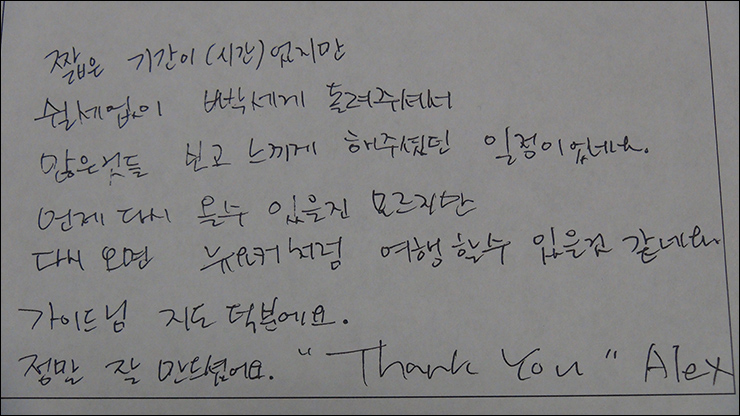 짧은 기간이(시간)었지만
쉴세없이 빡세게 돌려주셔서
많은것들 보고 느끼게 해주셨던 일정이었네요.
언제 다시 올수 있을진 모르지만
다시 오면 뉴요커처럼 여행 할수 있을것 같네요
가이드님 지도 덕분에요.
정말 잘 만드셨어요. "Thank You" Alex